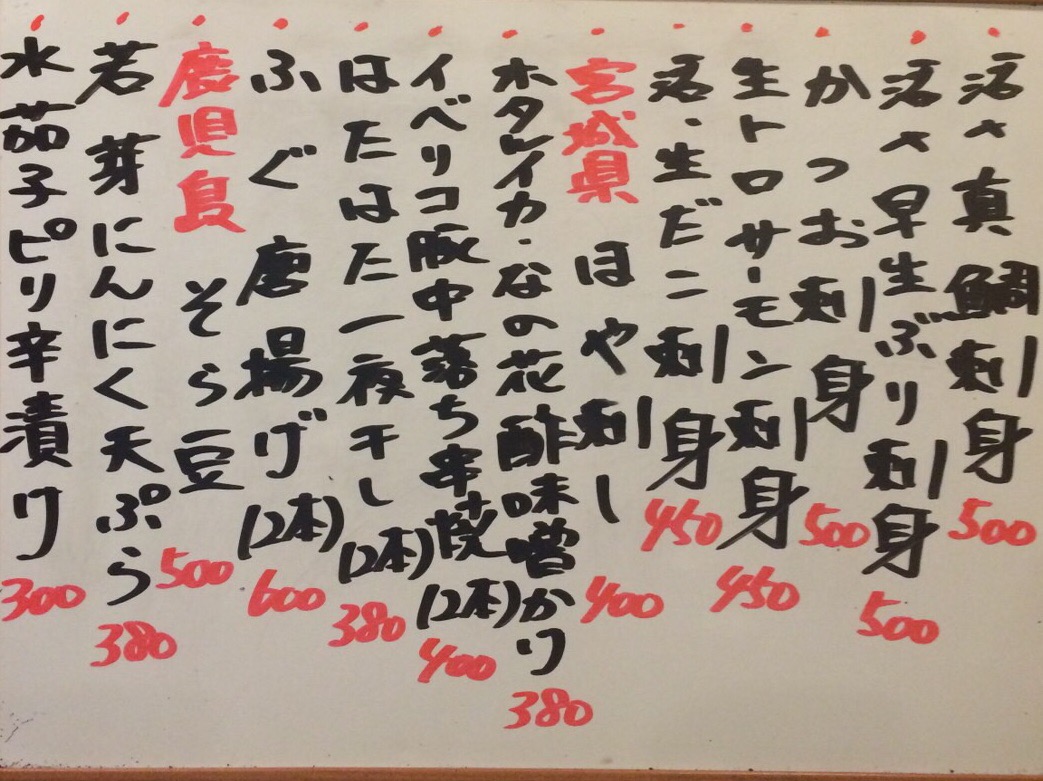 活〆真鯛刺身 500
活〆早生ぶり刺身 500
かつお刺身 500
生トロサーモン刺身 450
活・生だこ刺身 450
宮城県 ほや刺し 400
ホタルイカ・なの花酢味噌かけ 380
イベリコ豚中落ち串焼(2本) 400
はたはた一夜干し(2本) 380
ふぐ唐揚げ(2本) 600
鹿児島 そら豆 500
若芽にんにく天ぷら 380
水茄子ピリ辛漬け 300